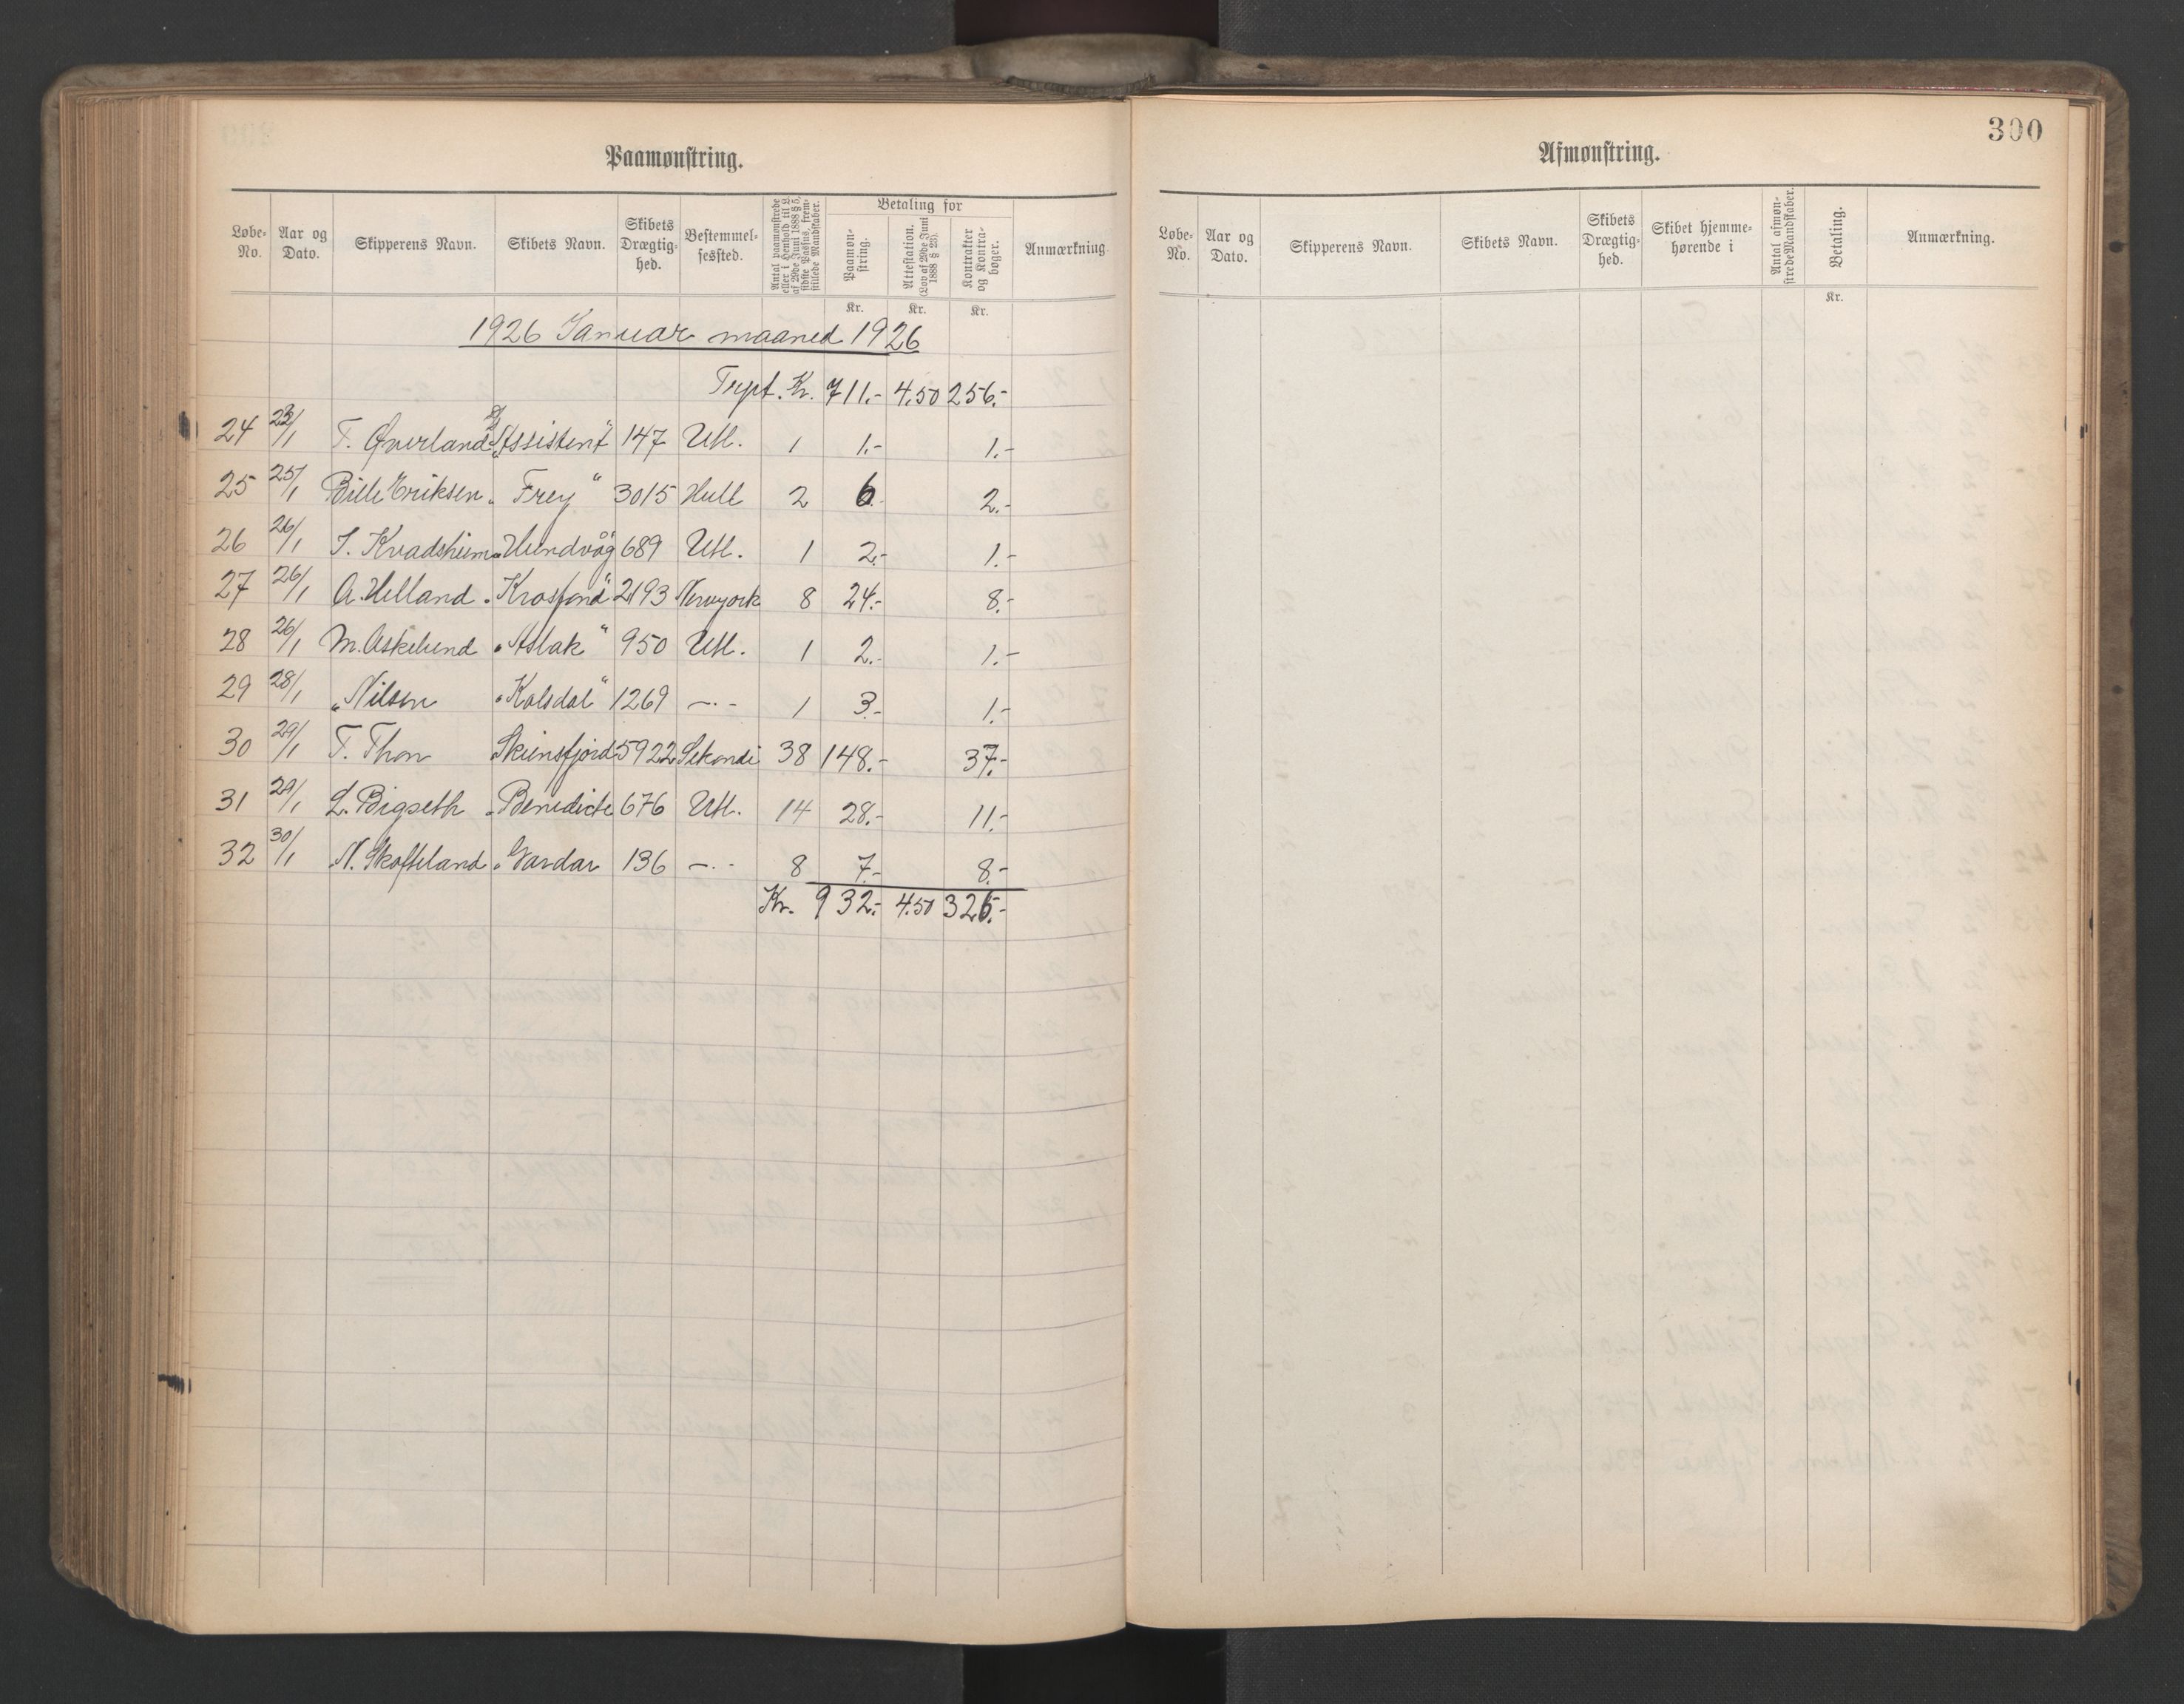 Paamønstring.
Løbe-No. Aar og Dato. Skipperens Navn. Skibets Navn. Skibets Drægtighed. Bestemmelsessted. Antal paamønstrede eller i Henhold til L. af 29de Juni 1888 § 5, sidste Passus, fremstillede Mandskaber. Betaling for Paamønstring. Attestation. (Lov af 29de Juni 1888 § 23). Kontrakter og Kontrabøger. Anmærkning
Kr. Kr. Kr.
1926 Januar maaned 1926
Trpt. Kr. 711.- 4.50 256.-
24 23/1 T. Øverland D/S "Assistent" 147 Utl. 1 1.- 1.-
25 25/1 Bille Eriksen " Frey " 3015 Hull 2 6 2.-
26 26/1 S. Kvadsheim "Hundvåg" 689 Utl. 1 2.- 1.-
27 26/1 A. Helland "Krosfond" 2193 Newyork 8 24.- 8.-
28 26/1 M. Askelund "Aslak" 950 Utl. 1 2.- 1.-
29 28/1 " Nilsen "Kalsdal" 1269 -.- 1 3.- 1.-
30 29/1 T. Thon Skiensfjord 5922 Sekondi 38 148.- 37.-
31 29/1 L. Bigseth "Benedicte 676 Utl. 14 28.- 11.-
32 30/1 N. Skofteland "Gardar 136 -.- 8 7.- 8.-
Kr. 932.- 4.50 326.-
300
Afmønstring.
Løbe-No. Aar og Dato. Skipperens Navn. Skibets Navn. Skibets Drægtighed. Skibet hjemmehørende i Antal afmønstrede Mandskaber. Betaling. Anmærkning.
Kr.